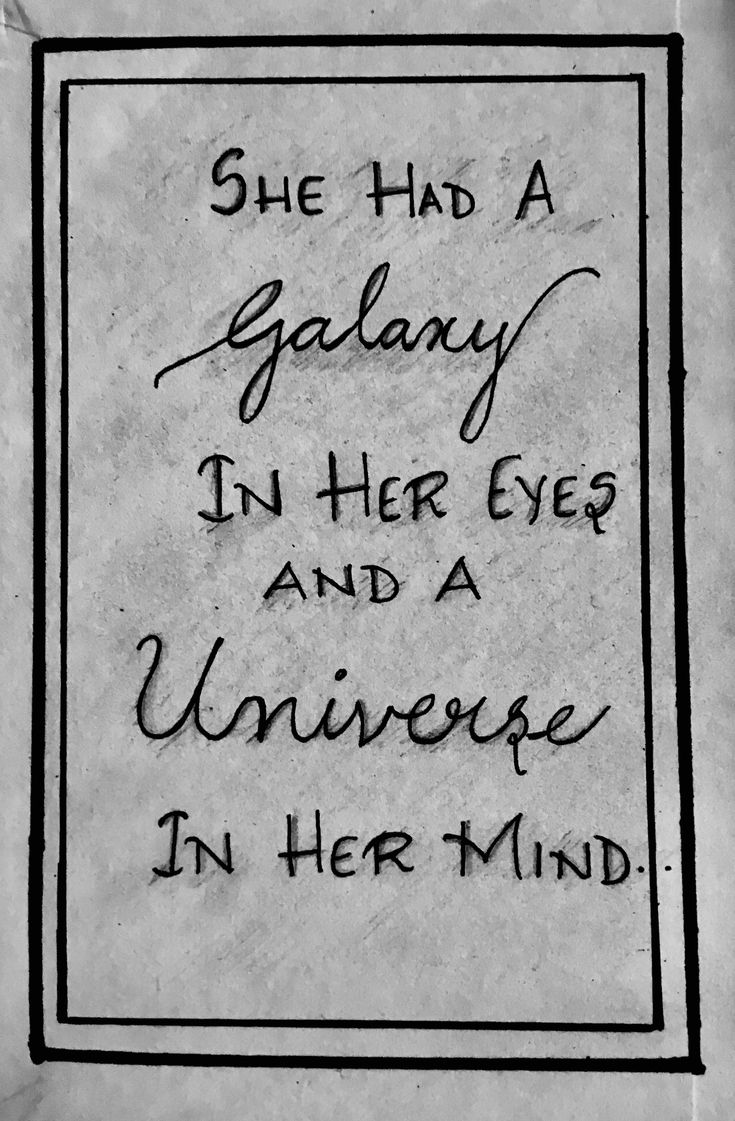 She Had A
Galaxy
In Her Eyes
and a
Universe
In Her Mind...